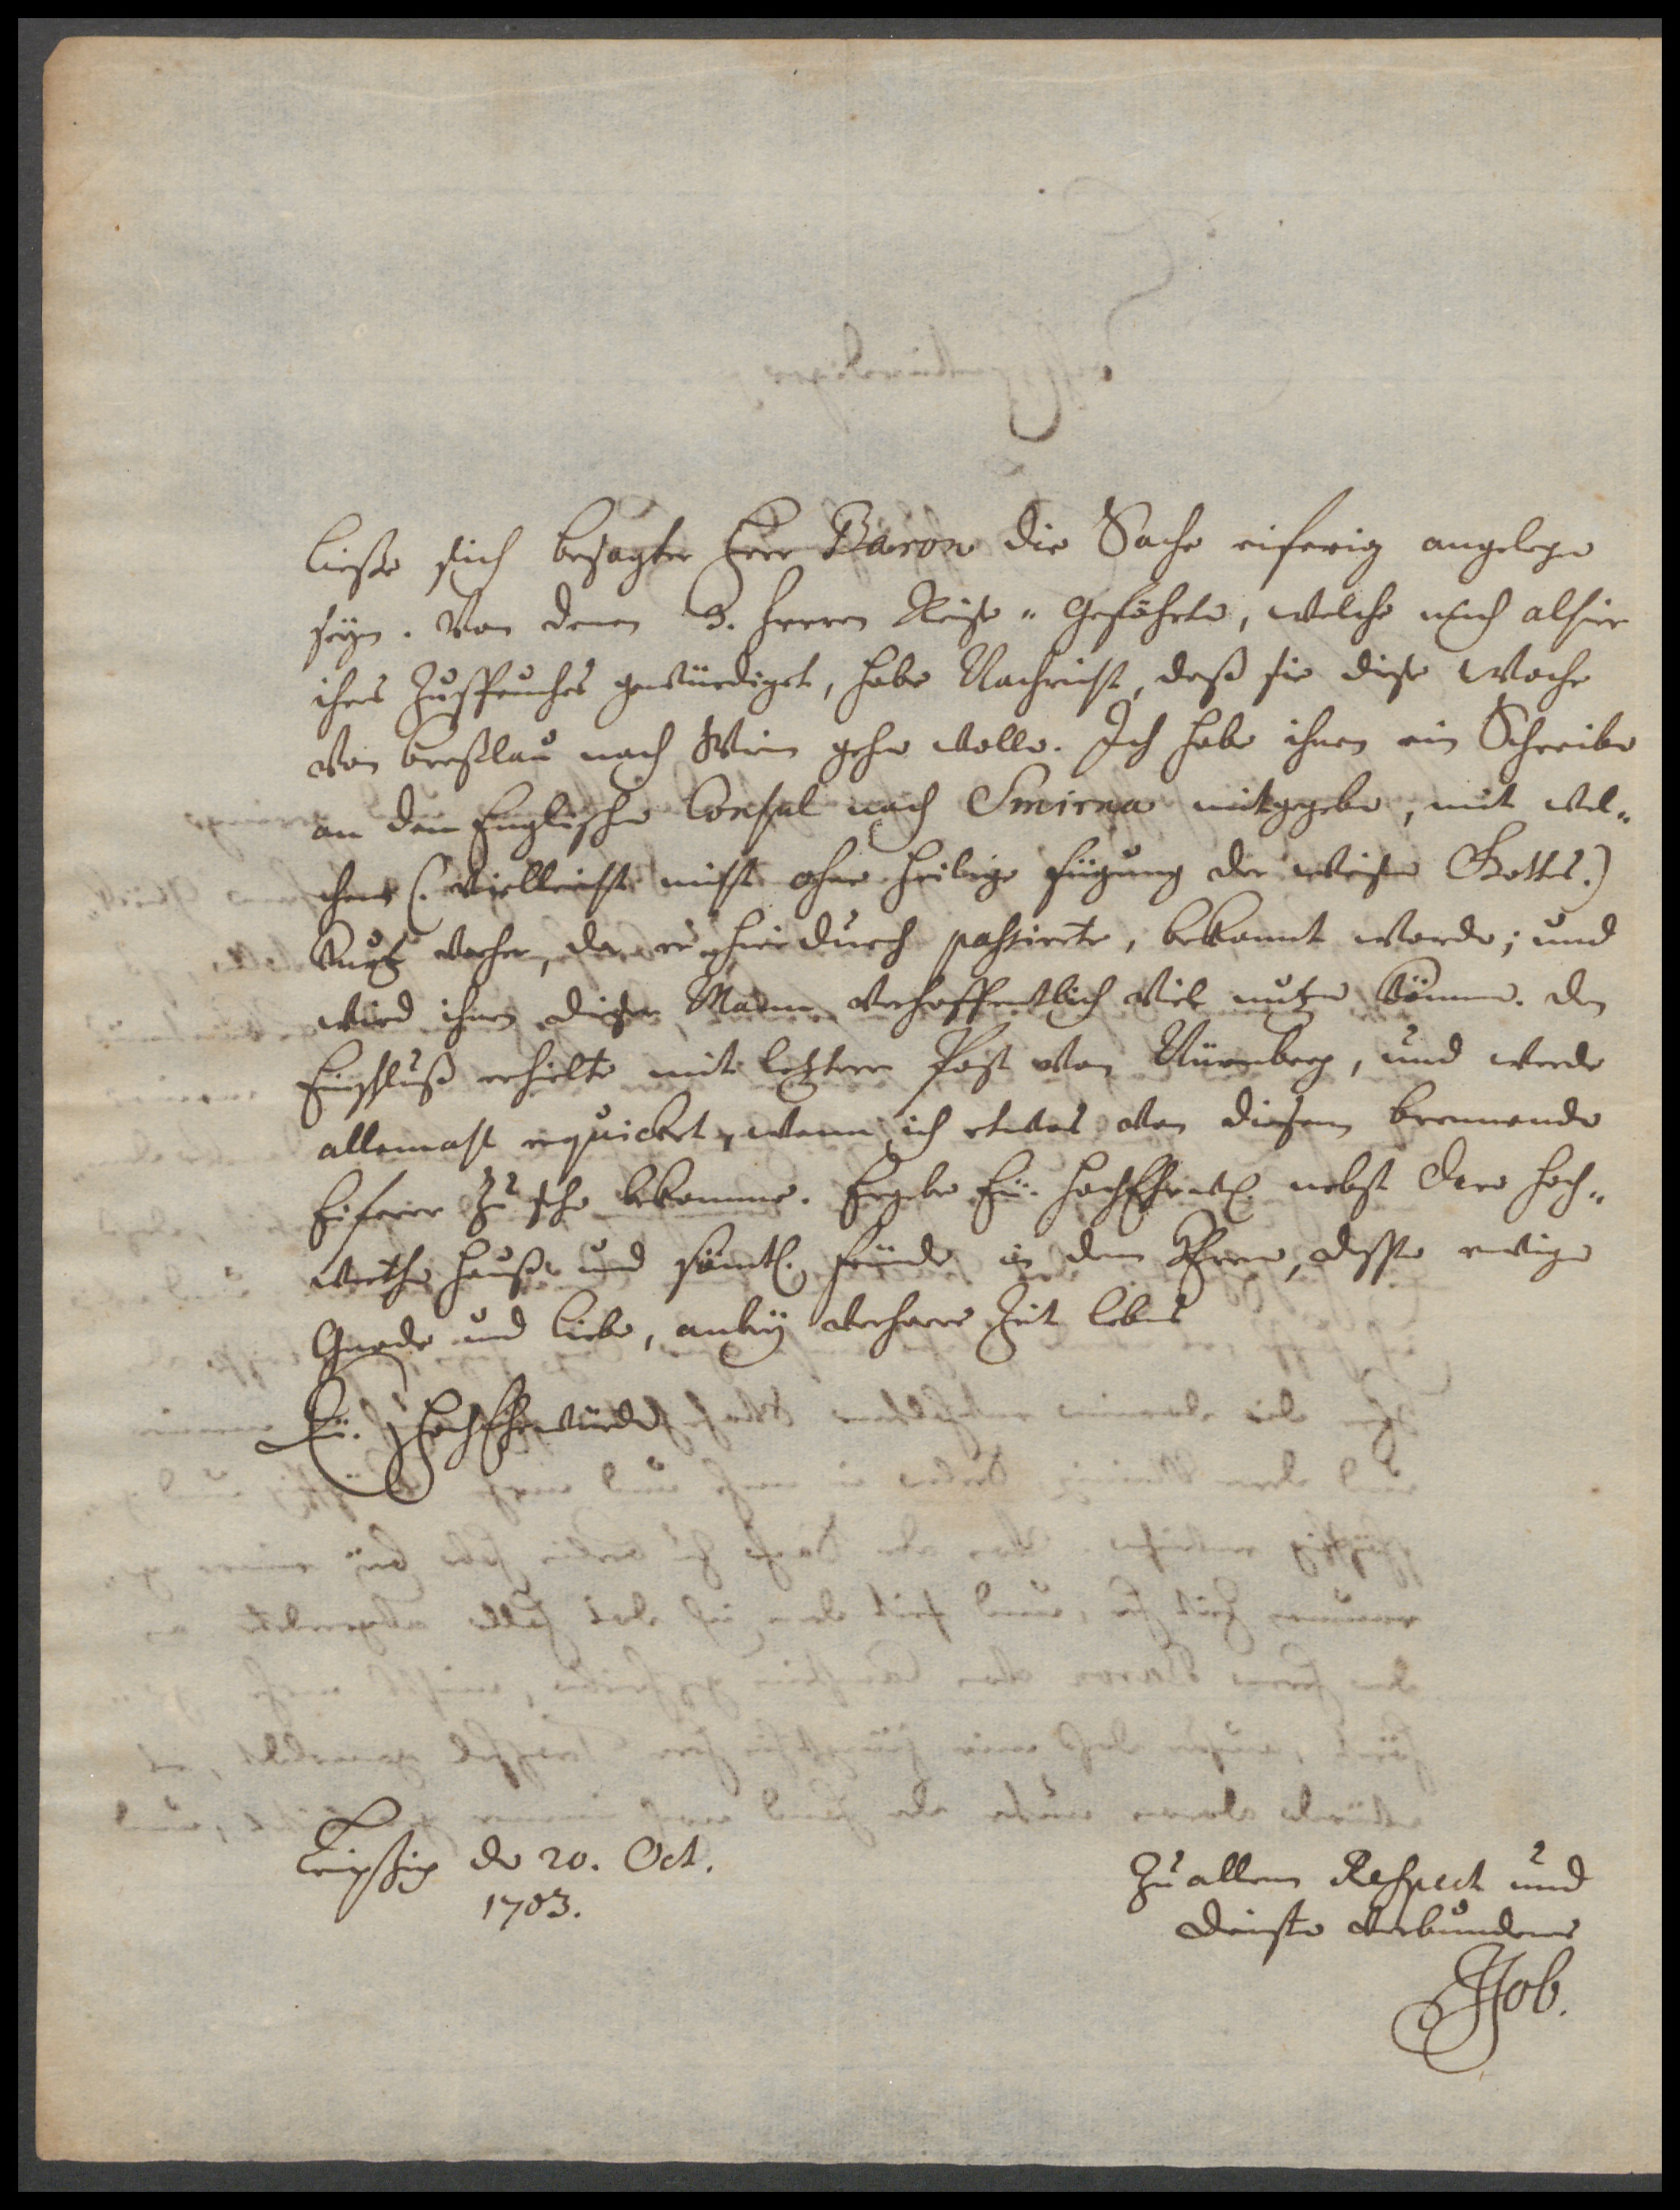 ließe sich besagter Herr Baron die Sache eiferig angelegen
seyn. Von denen 3. Herren Reise-Gefährte, welche mich alhier
ihres Zuspruches gewürdiget, habe Nachricht, daß sie diese Woche
von Breßlau nach Wien gehen wollen. Ich habe ihnen ein Schreiben
an den Englischen Consul nach Smirna mitgegeben, mit wel-
chem (: vielleicht nicht ohne heilige fügung der weisen Gottes.)
kurtz vorher, da er hierdurch passirete, bekannt worden; und
wird ihnen dieser Mann verhoffentlich viel nutzen können. Den
Einschluß erhielte mit letzterer Post von Nürnberg, und werde
allemahl erquicket, wenn ich etwas von diesem brennenden
Eiferer zu sehen bekomme. Ergebe Eu. HochEhrwl. nebst dero hoch-
werthen Hause und sämtl. freunde in dem Herrn, dessen ewigen
Gnade und liebe, anbey verharre Zeit lebens
Eu. HochEhrwürden
Leipßig den 20. Oct.
1703.
Zu allem Respect und
Dienste verbundener
JJob.